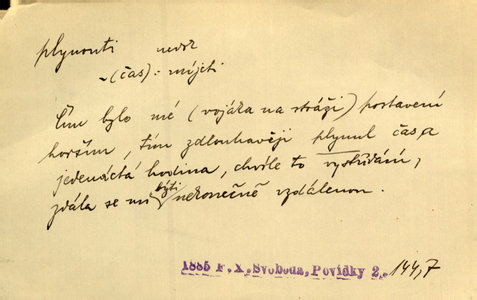 plynouti nedok
~ (čas): míjeti
Čím bylo mé (vojáka na stráži) postavení
horším, tím zdlouhavěji plynul čas a
jedenáctá hodina, chvíle to vystřídání,
zdála se mi býti nekonečně vzdálenou.
1885 F. X. Svoboda, Povídky 2. 144,7